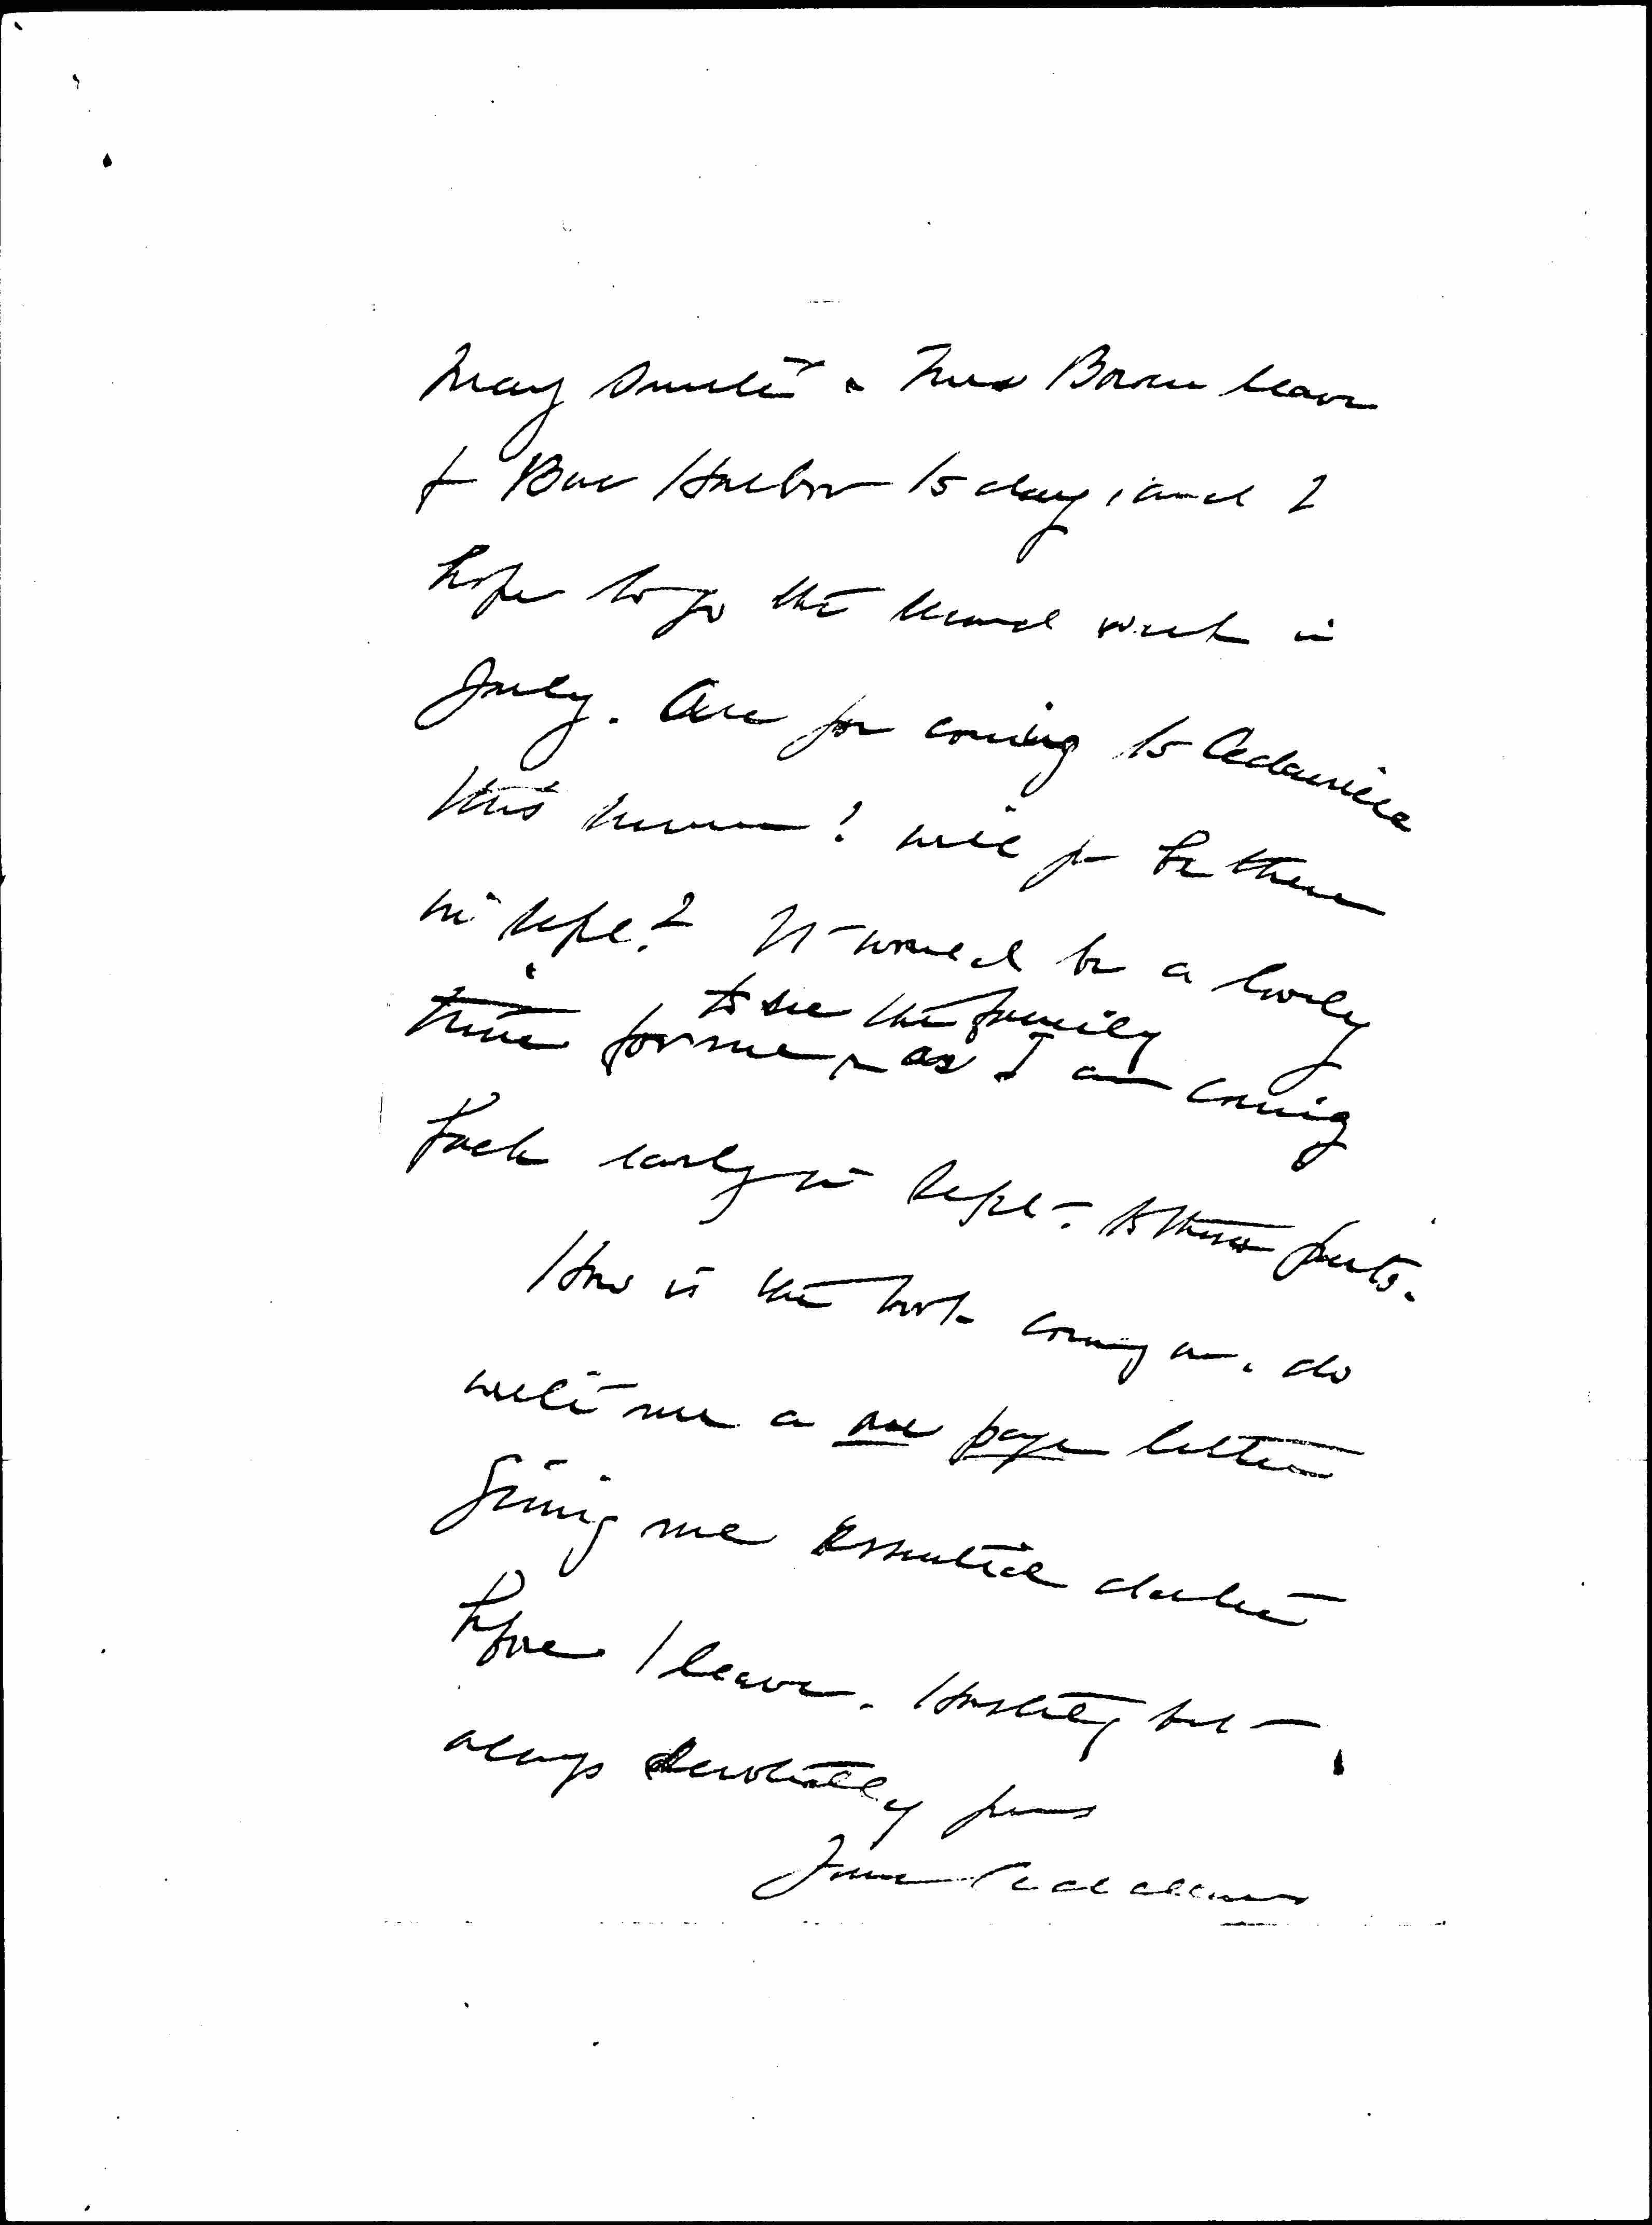 Mary Smith & Mrs Bowen leave
for Bar Harbor to day, and I
hope to go the second week in
July. Are you coming to Cedarville
this summer? will you be there
in Sept? It would be a lovely
to see the family
time for me as I am coming
back early in Sept. to these parts.
How is the book coming on. do
write me a one page letter
giving me essential
before I leave. Hastily but
always devotedly yours
Jane Addams